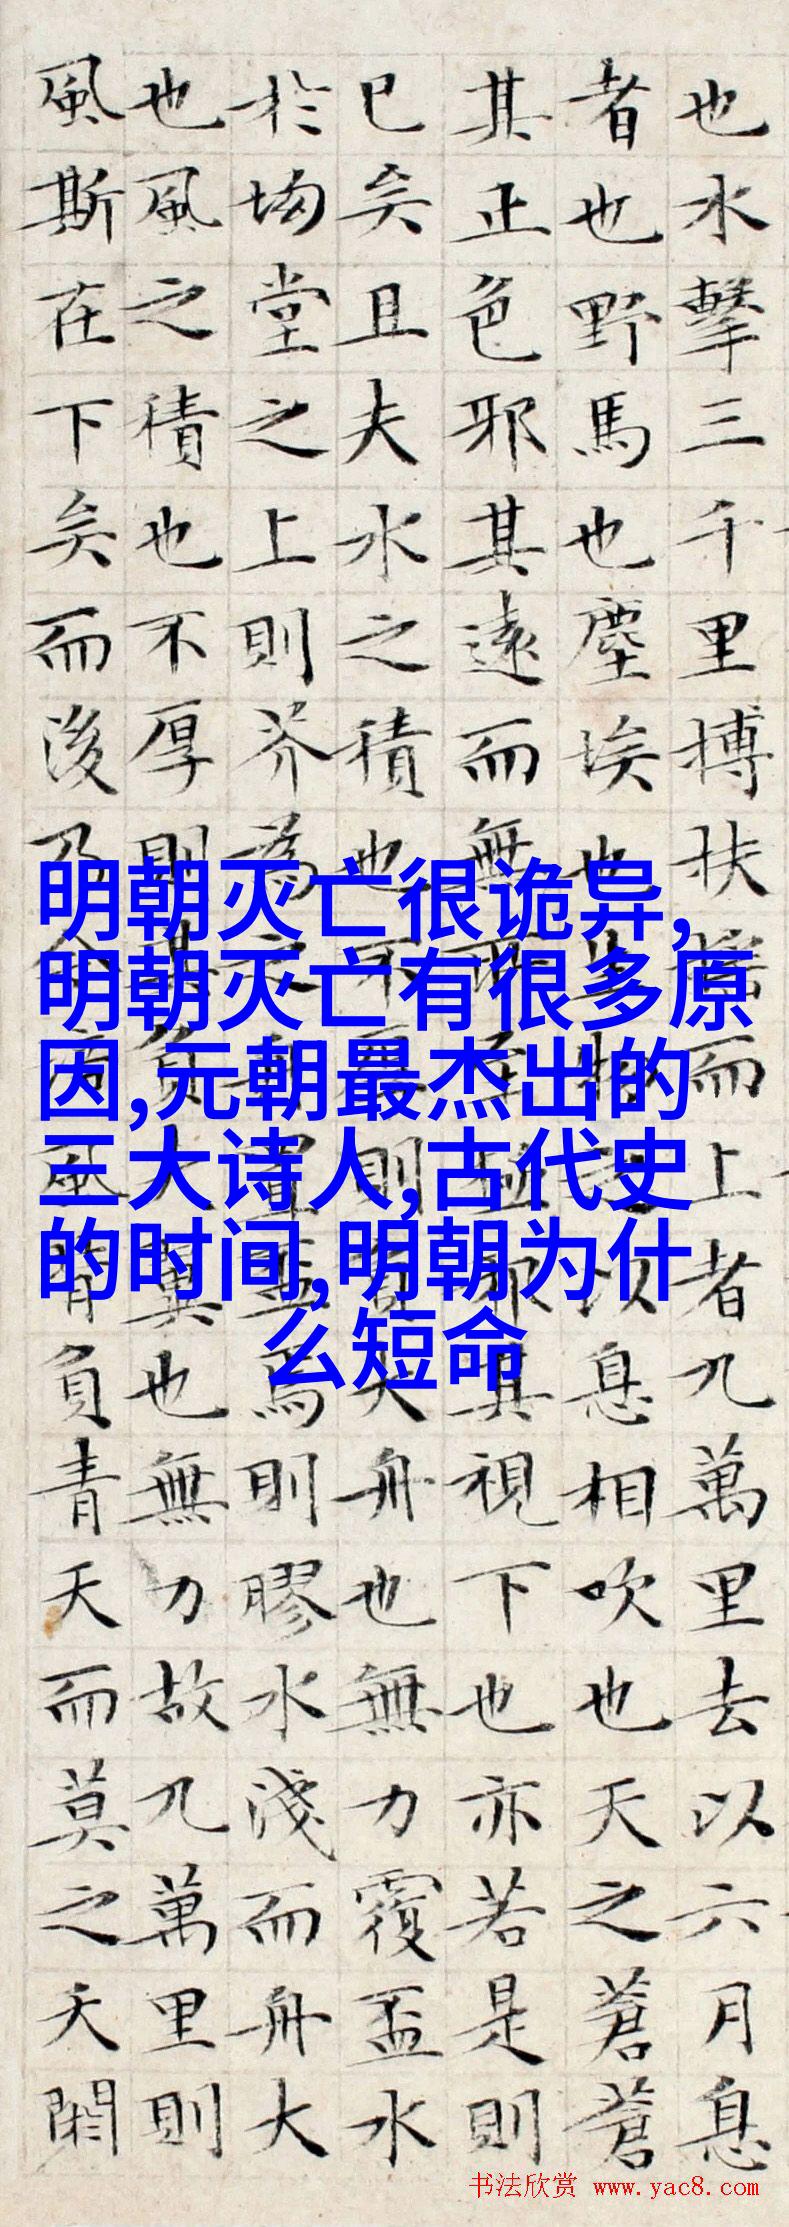 也水擊三千里搏扶搖而上者九萬里去以六月息
者也野馬也塵埃也生物之以息相吹也天之蒼蒼
其正色邪其遠而無所至極邪其視下也亦若是則
已矣且夫水之積也不厚則負大舟也無力覆盃水
於坳堂之上則芥為之舟置盃焉則膠水淺而舟大
也風之積也不厚則其負大翼也無力故九萬里則
風斯在下矣而後乃今培風背負青天而莫之夭閼
明朝灭亡很诡异,
明朝灭亡有很多原
因,元朝最杰出的
三大诗人,古代史
的时间,明朝为什
么短命
书法欣赏 www.yac8.com